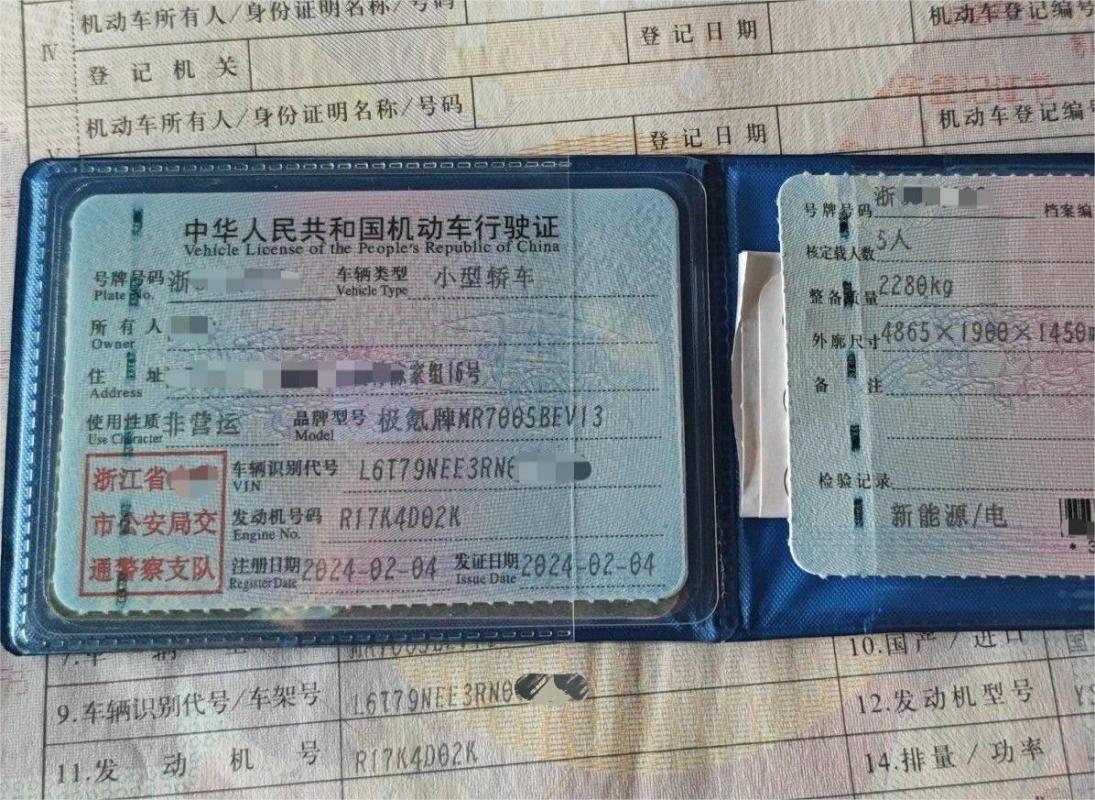 机动车所有人/身份证明名称/号码
机动车登记编号
Ⅳ
登记机关
登记日期
机动车所有人/身份证明名称/号码
机动车登记编号
登记日期
中华人民共和国机动车行驶证
Vehicle License of the People's Republic of China
号牌号码 浙
Plate No.
车辆类型 小型轿车
Vehicle Type
所有人
Owner
住址 组16号
Address
使用性质 非营运
Use Character
品牌型号 极氪牌MR7005BEV13
Model
浙江省
市公安局交
通警察支队
车辆识别代号 L6T79NEE3RN0
VIN
发动机号码 R17K4D02K
Engine No.
注册日期 2024-02-04
Register Date
发证日期 2024-02-04
Issue Date
号牌号码 浙
档案编
核定载人数 5人
整备质量 2280kg
外廓尺寸 4865×1900×1450
备注
检验记录
新能源/电
10.国产/进口
9.车辆识别代号/车架号 L6T79NEE3RN0
12.发动机型号
11.发动机号 R17K4D02K
14.排量/功率